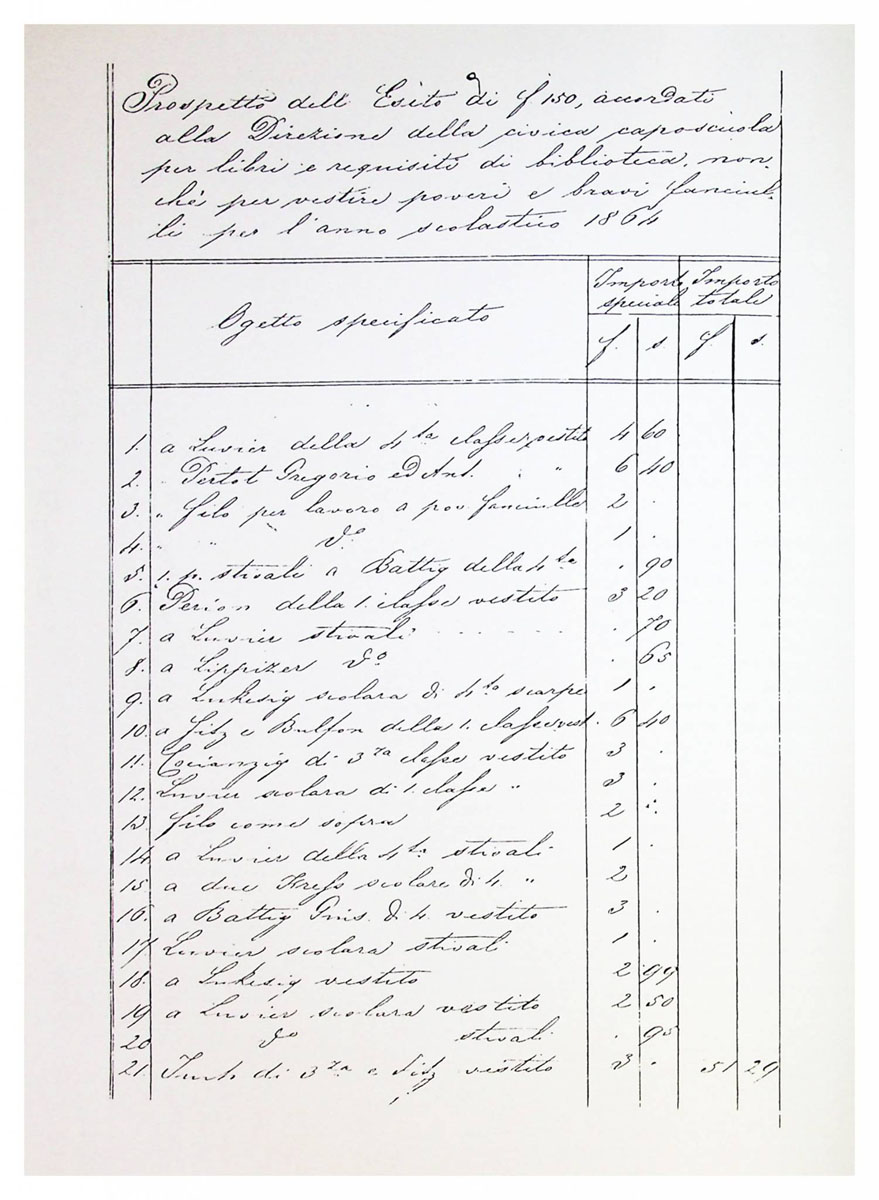 Prospetto dell' Esito di f 150, accordati
alla Direzione della civica caposcuola
per libri e requisiti di biblioteca, non-
chè per vestire poveri e bravi fanciul-
li per l'anno scolastico 1864
Ogetto specificato
Importo speciale
Importo totale
f. s. f. s.
1. a Luvier della 4ta classe, vestito 4 60
2. " Pertot Gregorio ed Ant. " 6 40
3. " filo per lavoro a pov. fanciulle 2 .
4. " " " do 1 .
5. 1. p. stivali a Battig della 4ta . 90
6. Perion della 1. classe vestito 3 20
7. a Luvier stivali . 70
8. a Lippizer do . 65
9. a Lukesig scolara di 4ta scarpe 1 .
10. a Sitz e Bulfon della 1. classe vest. 6 40
11. Cocianzig di 3za classe vestito 3 .
12. Luvier scolara di 1. classe " 3 .
13 filo come sopra 2 .
14 a Luvier della 4ta stivali 1 .
15 a due Kress scolare di 4. " 2
16. a Battig Gius. di 4. vestito 3 .
17 Luvier scolara stivali 1 .
18. a Lukesig vestito 2 99
19 a Luvier scolara vestito 2 50
20 do stivali . 95
21. di 3za e Sitz vestito 3 . 51 29